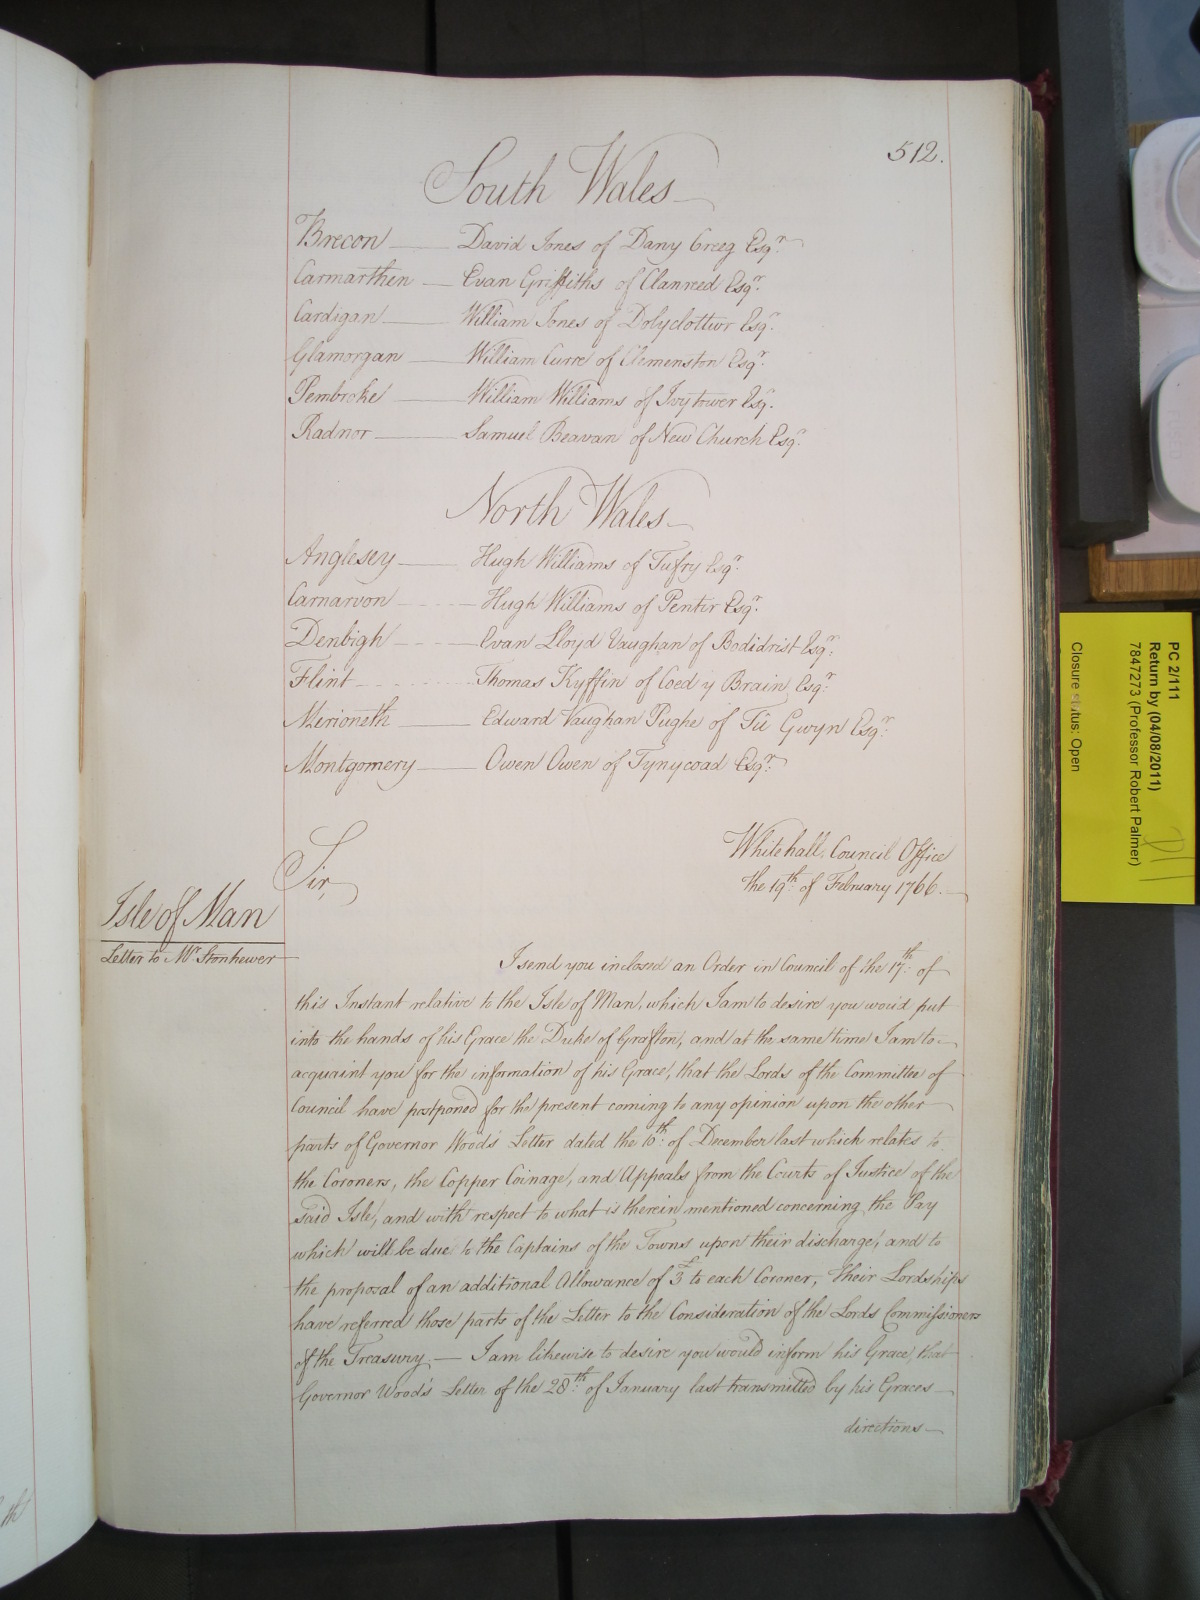 512.
South Wales
Brecon David Jones of Dany Creeg Esqr.
Carmarthen Evan Griffiths of Clanreed Esqr.
Cardigan William Jones of Dolyclottwr Esqr.
Glamorgan William Curre of Clemenston Esqr.
Pembroke William Williams of Ivytower Esqr.
Radnor Samuel Beavan of New Church Esqr.
North Wales
Anglesey Hugh Williams of Tufry Esqr.
Carnarvon Hugh Williams of Pentir Esqr.
Denbigh Evan Lloyd Vaughan of Bodidrist Esqr.
Flint Thomas Kyffin of Coed y Brain Esqr.
Merioneth Edward Vaughan Pughe of Tu Gwyn Esqr.
Montgomery Owen Owen of Tynycoad Esqr.
Whitehall, Council Office
the 19th. of February 1766.
Sir,
Isle of Man
Letter to Mr Stonhewer
I send you inclosed an Order in Council of the 17th. of
this Instant relative to the Isle of Man, which I am to desire you woud put
into the hands of his Grace the Duke of Grafton, and at the same time I am to
acquaint you for the information of his Grace, that the Lords of the Committee of
Council have postponed for the present coming to any opinion upon the other
parts of Governor Woods Letter dated the 10th. of December last which relates to
the Coroners, the Copper Coinage, and Appeals from the Courts of Justice of the
said Isle, and with respect to what is therein mentioned concerning the Pay
which will be due to the Captains of the Towns upon their discharge, and to
the proposal of an additional Allowance of £3 to each Coroner, their Lordships
have referred those parts of the Letter to the Consideration of the Lords Commissioners
of the Treasury. — I am likewise to desire you would inform his Grace, that
Governor Wood's Letter of the 28th. of January last transmitted by his Graces
directions
PC 2/111
Return by (04/08/2011)
7847273 (Professor Robert Palmer)
Closure status: Open